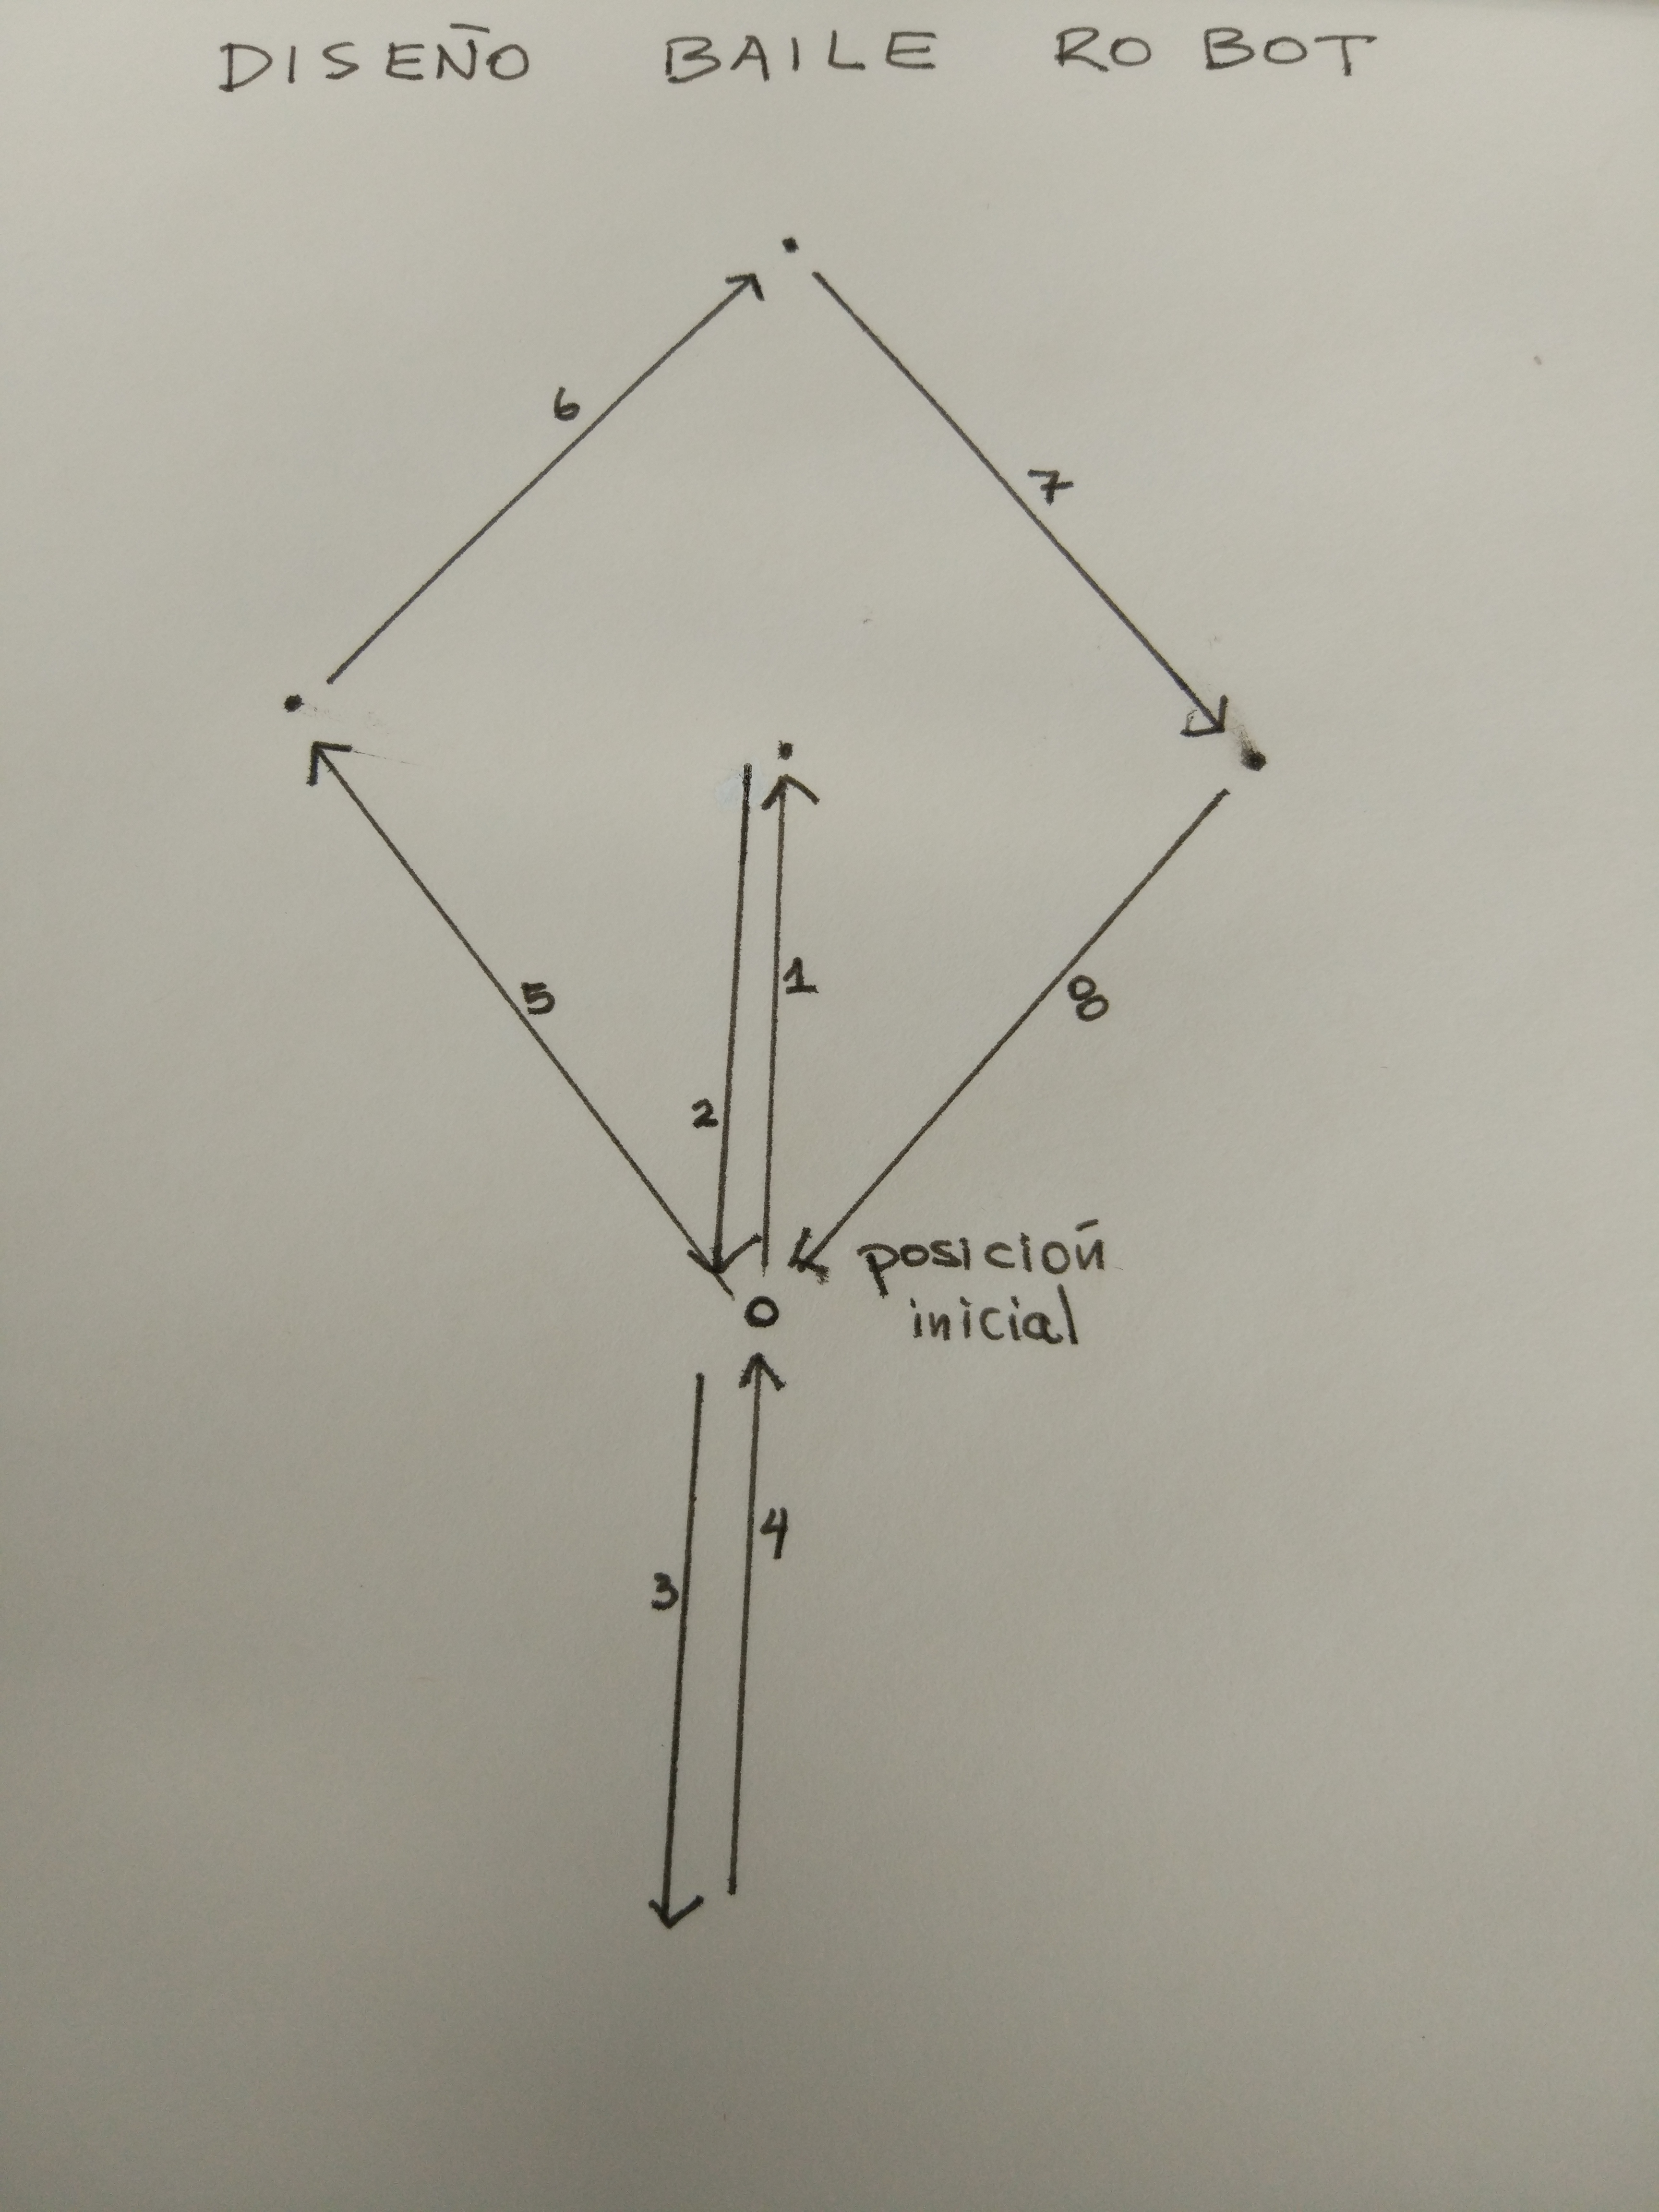 DISEÑO BAILE ROBOT
6
7
5
1
8
2
posición
inicial
4
3